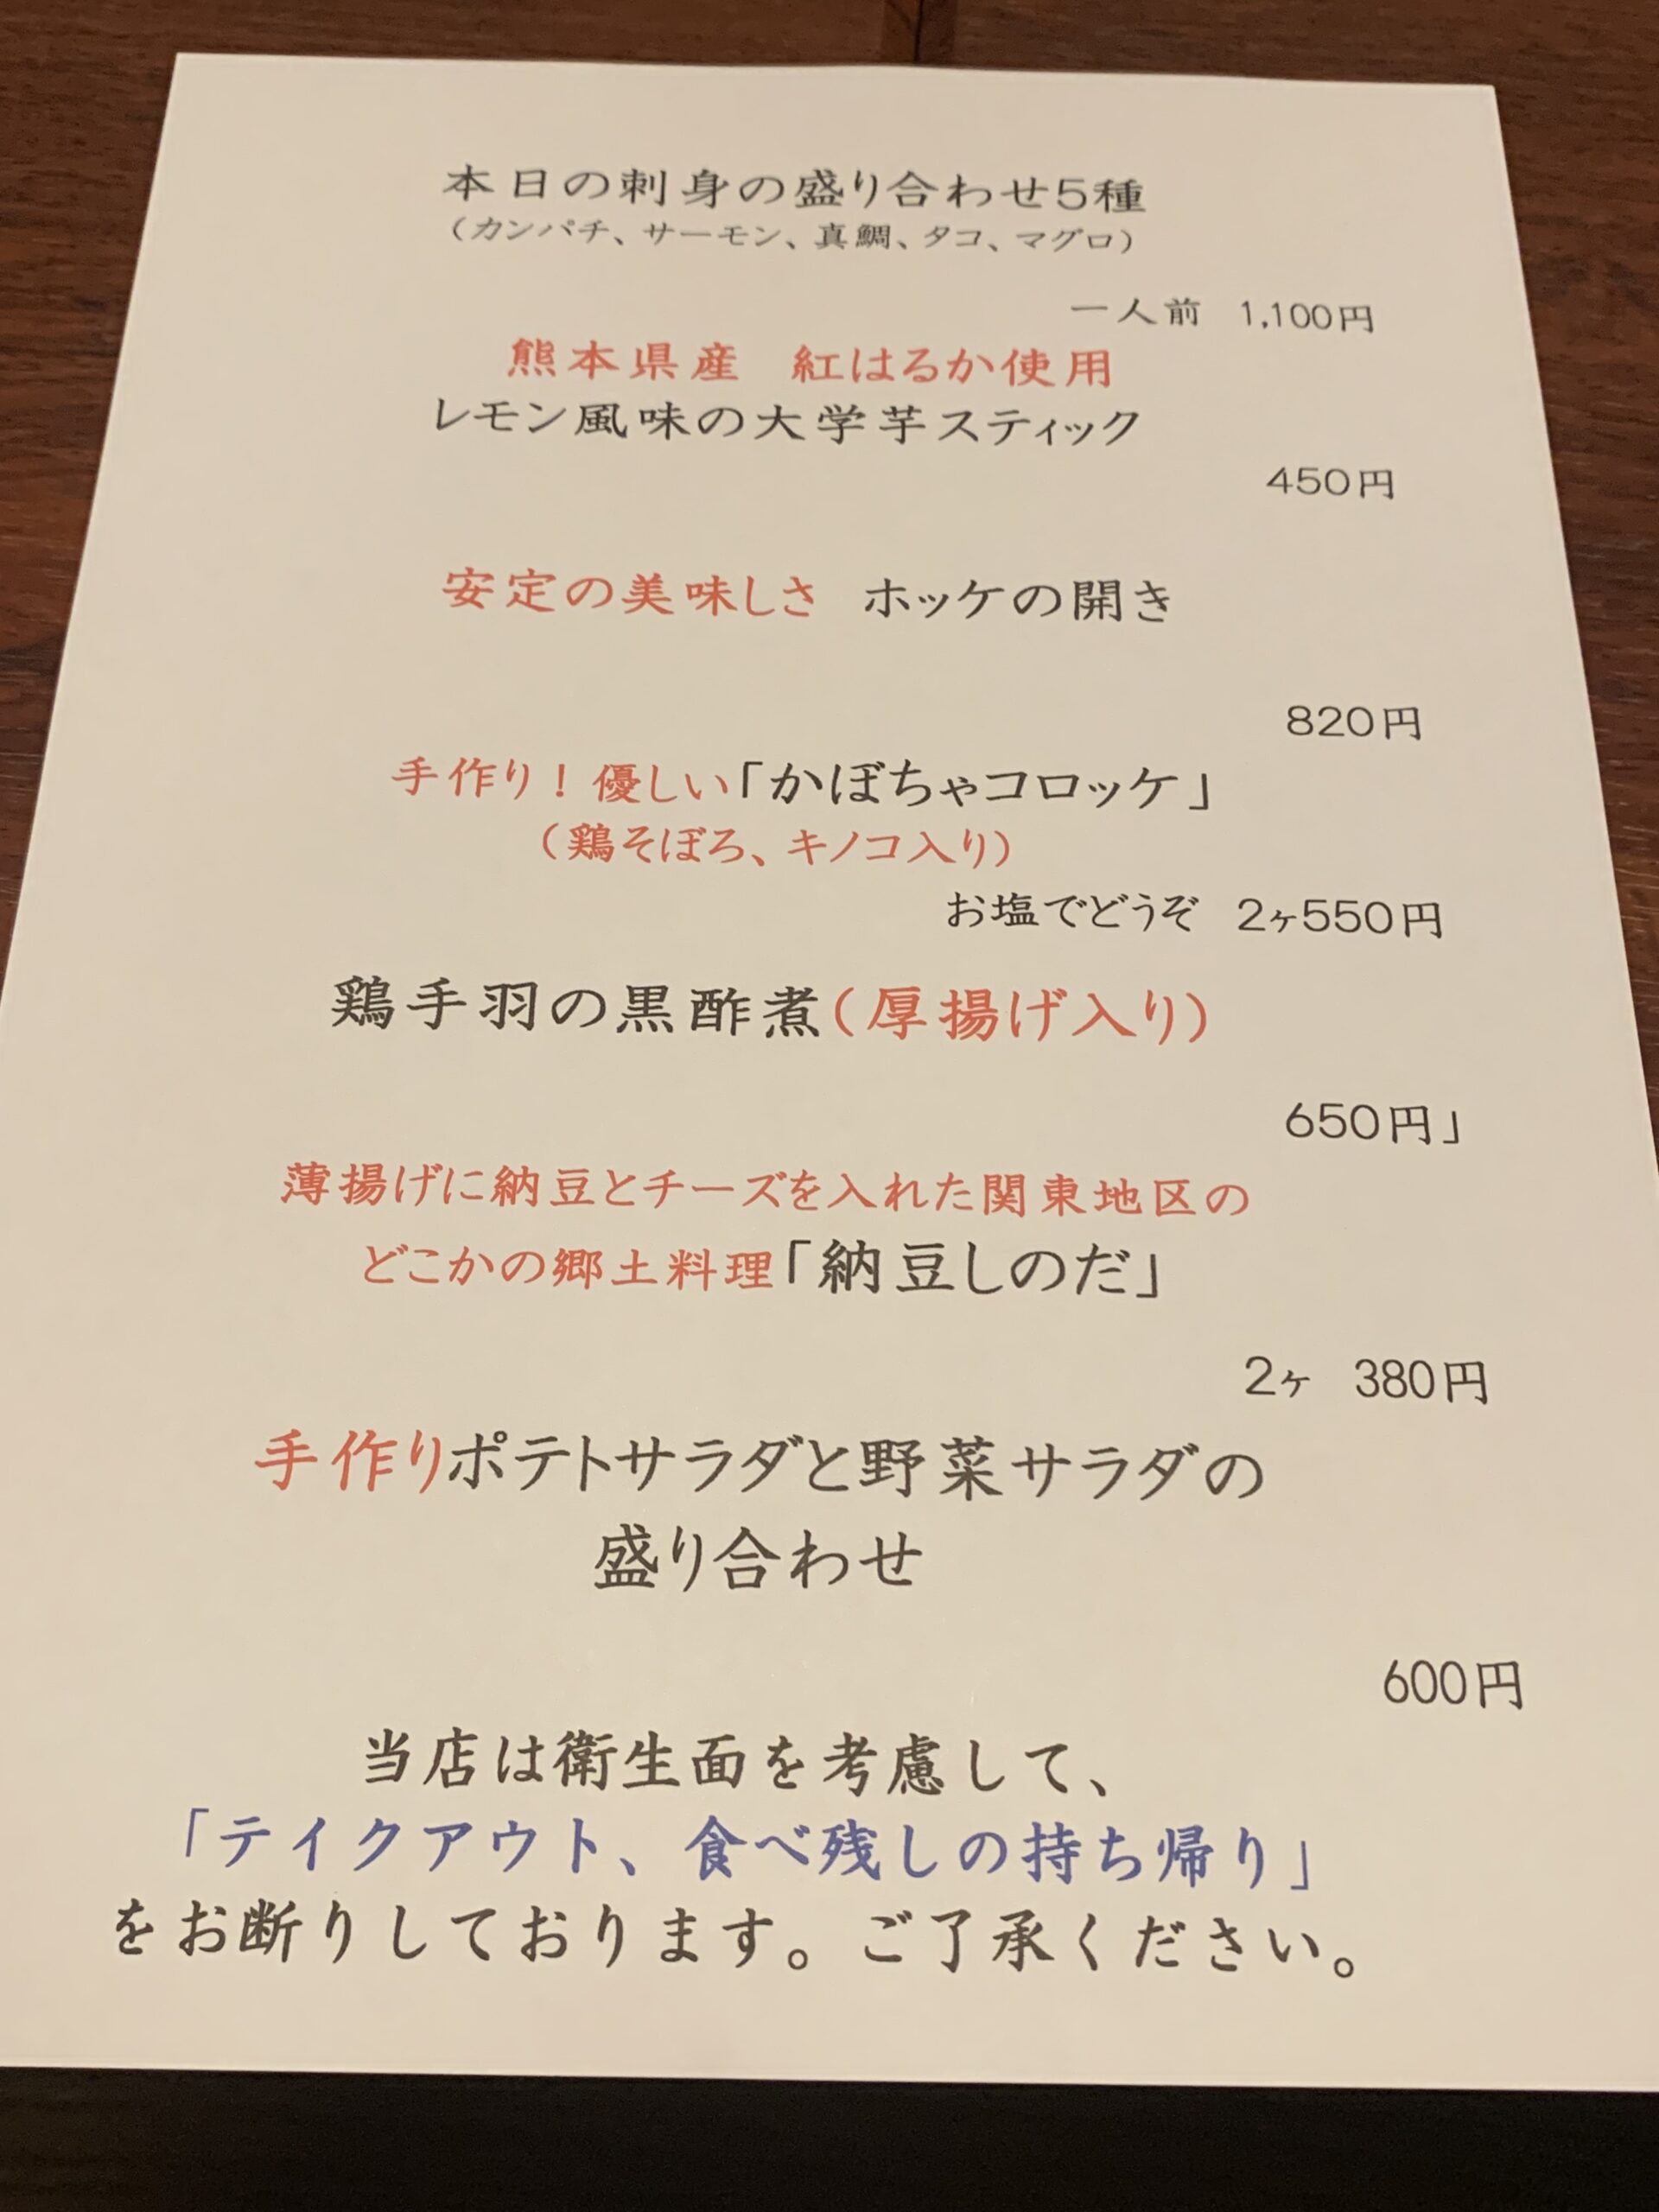 本日の刺身の盛り合わせ5種
（カンパチ、サーモン、真鯛、タコ、マグロ）
一人前　1,100円
熊本県産　紅はるか使用
レモン風味の大学芋スティック
450円
安定の美味しさ　ホッケの開き
820円
手作り！優しい「かぼちゃコロッケ」
（鶏そぼろ、キノコ入り）
お塩でどうぞ　2ヶ550円
鶏手羽の黒酢煮（厚揚げ入り）
650円」
薄揚げに納豆とチーズを入れた関東地区の
どこかの郷土料理「納豆しのだ」
2ヶ　380円
手作りポテトサラダと野菜サラダの
盛り合わせ
600円
当店は衛生面を考慮して、
「テイクアウト、食べ残しの持ち帰り」
をお断りしております。ご了承ください。